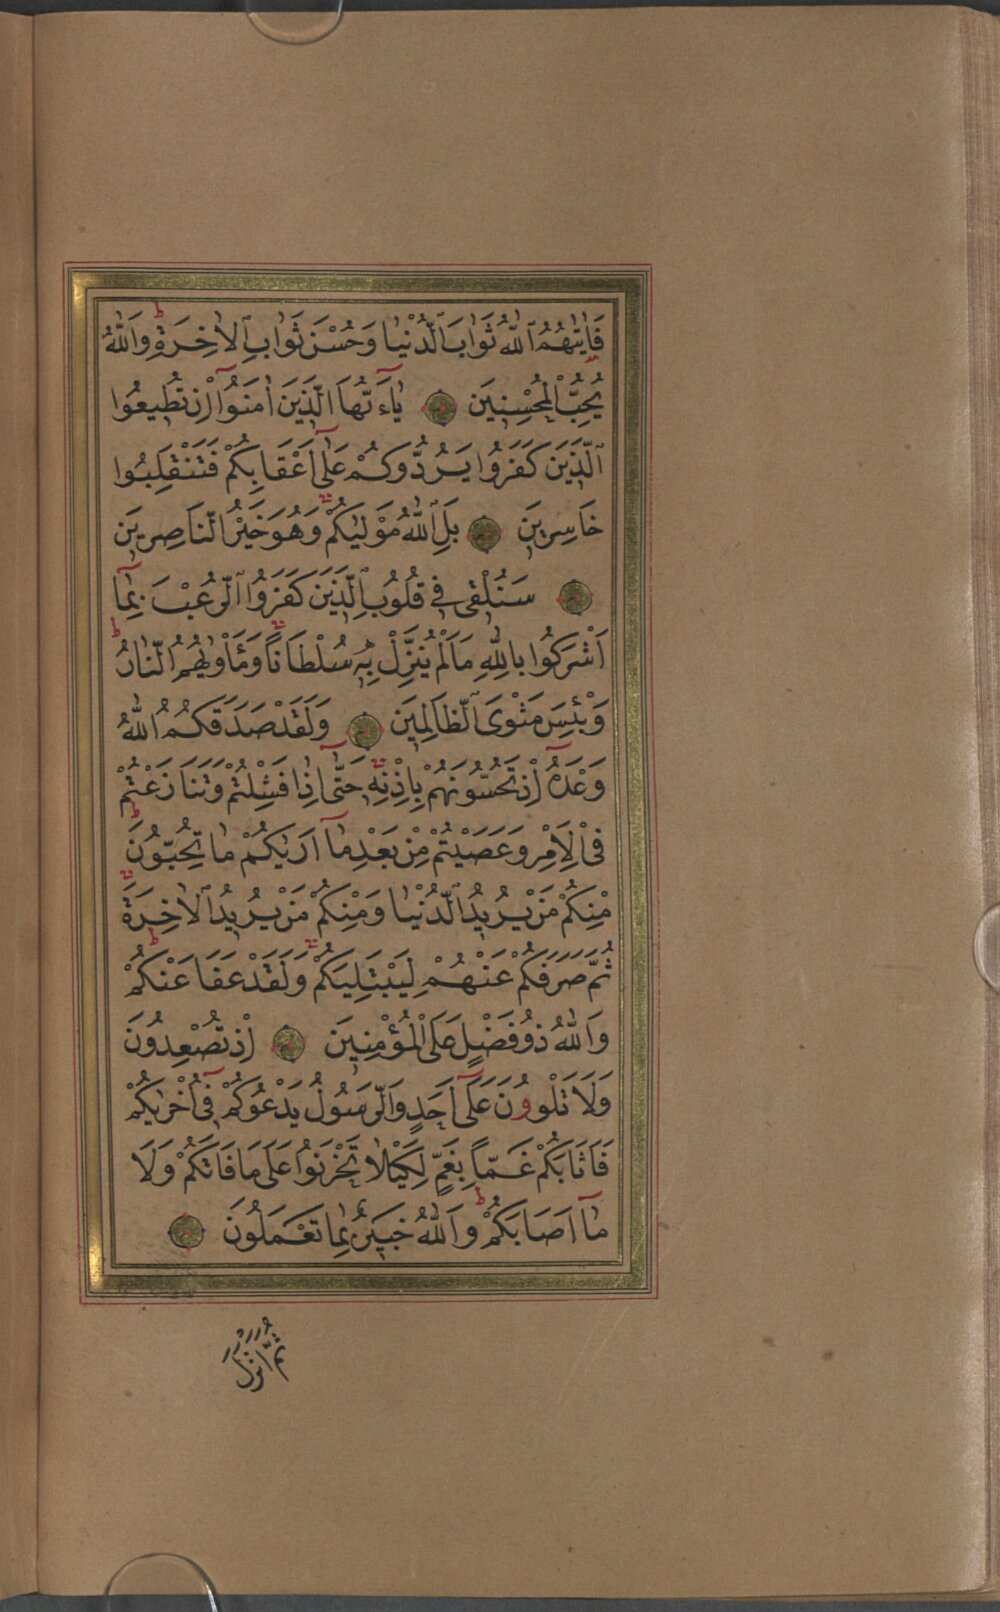 فَاٰتٰيهُمُ ٱللّٰهُ ثَوَابَ ٱلدُّنْيٰا وَحُسْنَ ثَوَابِ ٱلْاٰخِرَةِ ط وَٱللّٰهُ
يُحِبُّ ٱلْمُحْسِنِينَ يٰٓاَءيُّهَا ٱلَّذِينَ اٰمَنُوٓا اِنْ تُطِيعُوا
ٱلَّذِينَ كَفَرُوا يَرُدُّوكُمْ عَلٰٓى اَعْقَابِكُمْ فَتَنْقَلِبُوا
خَاسِرِينَ بَلِ ٱللّٰهُ مَوْلٰيكُمْ وَهُوَ خَيْرُ ٱلنَّاصِرِينَ
سَنُلْقِى فِى قُلُوبِ ٱلَّذِينَ كَفَرُوا ٱلرُّعْبَ بِمٰٓا
اَشْرَكُوا بِاللّٰهِ مَا لَمْ يُنَزِّلْ بِهٖ سُلْطَانًا وَمَأْوٰيهُمُ ٱلنّٰارُ ط
وَبِئْسَ مَثْوَى ٱلظَّالِمِينَ وَلَقَدْ صَدَقَكُمُ ٱللّٰهُ
وَعْدَهُٓ اِذْ تَحُسُّونَهُمْ بِاِذْنِهٖ حَتّٰٓى اِذَا فَشِلْتُمْ وَتَنَازَعْتُمْ
فِى ٱلْاَمْرِ وَعَصَيْتُمْ مِنْ بَعْدِ مٰٓا اَرٰيكُمْ مٰا تُحِبُّونَ ط
مِنْكُمْ مَنْ يُرِيدُ ٱلدُّنْيٰا وَمِنْكُمْ مَنْ يُرِيدُ ٱلْاٰخِرَةَ
ثُمَّ صَرَفَكُمْ عَنْهُمْ لِيَبْتَلِيَكُمْ وَلَقَدْ عَفَا عَنْكُمْ ط
وَٱللّٰهُ ذُو فَضْلٍ عَلَى ٱلْمُؤْمِنِينَ اِذْ تُصْعِدُونَ
وَلَا تَلْوُونَ عَلٰٓى اَحَدٍ وَٱلرَّسُولُ يَدْعُوكُمْ فِٓى اُخْرٰيكُمْ
فَاَثَابَكُمْ غَمًّا بِغَمٍّ لِكَيْلٰا تَحْزَنُوا عَلَى مَا فَاتَكُمْ وَلَا
مٰٓا اَصَابَكُمْ ط وَٱللّٰهُ خَبِيرٌ بِمٰا تَعْمَلُونَ
ثُمَّ اَنْزَلَ